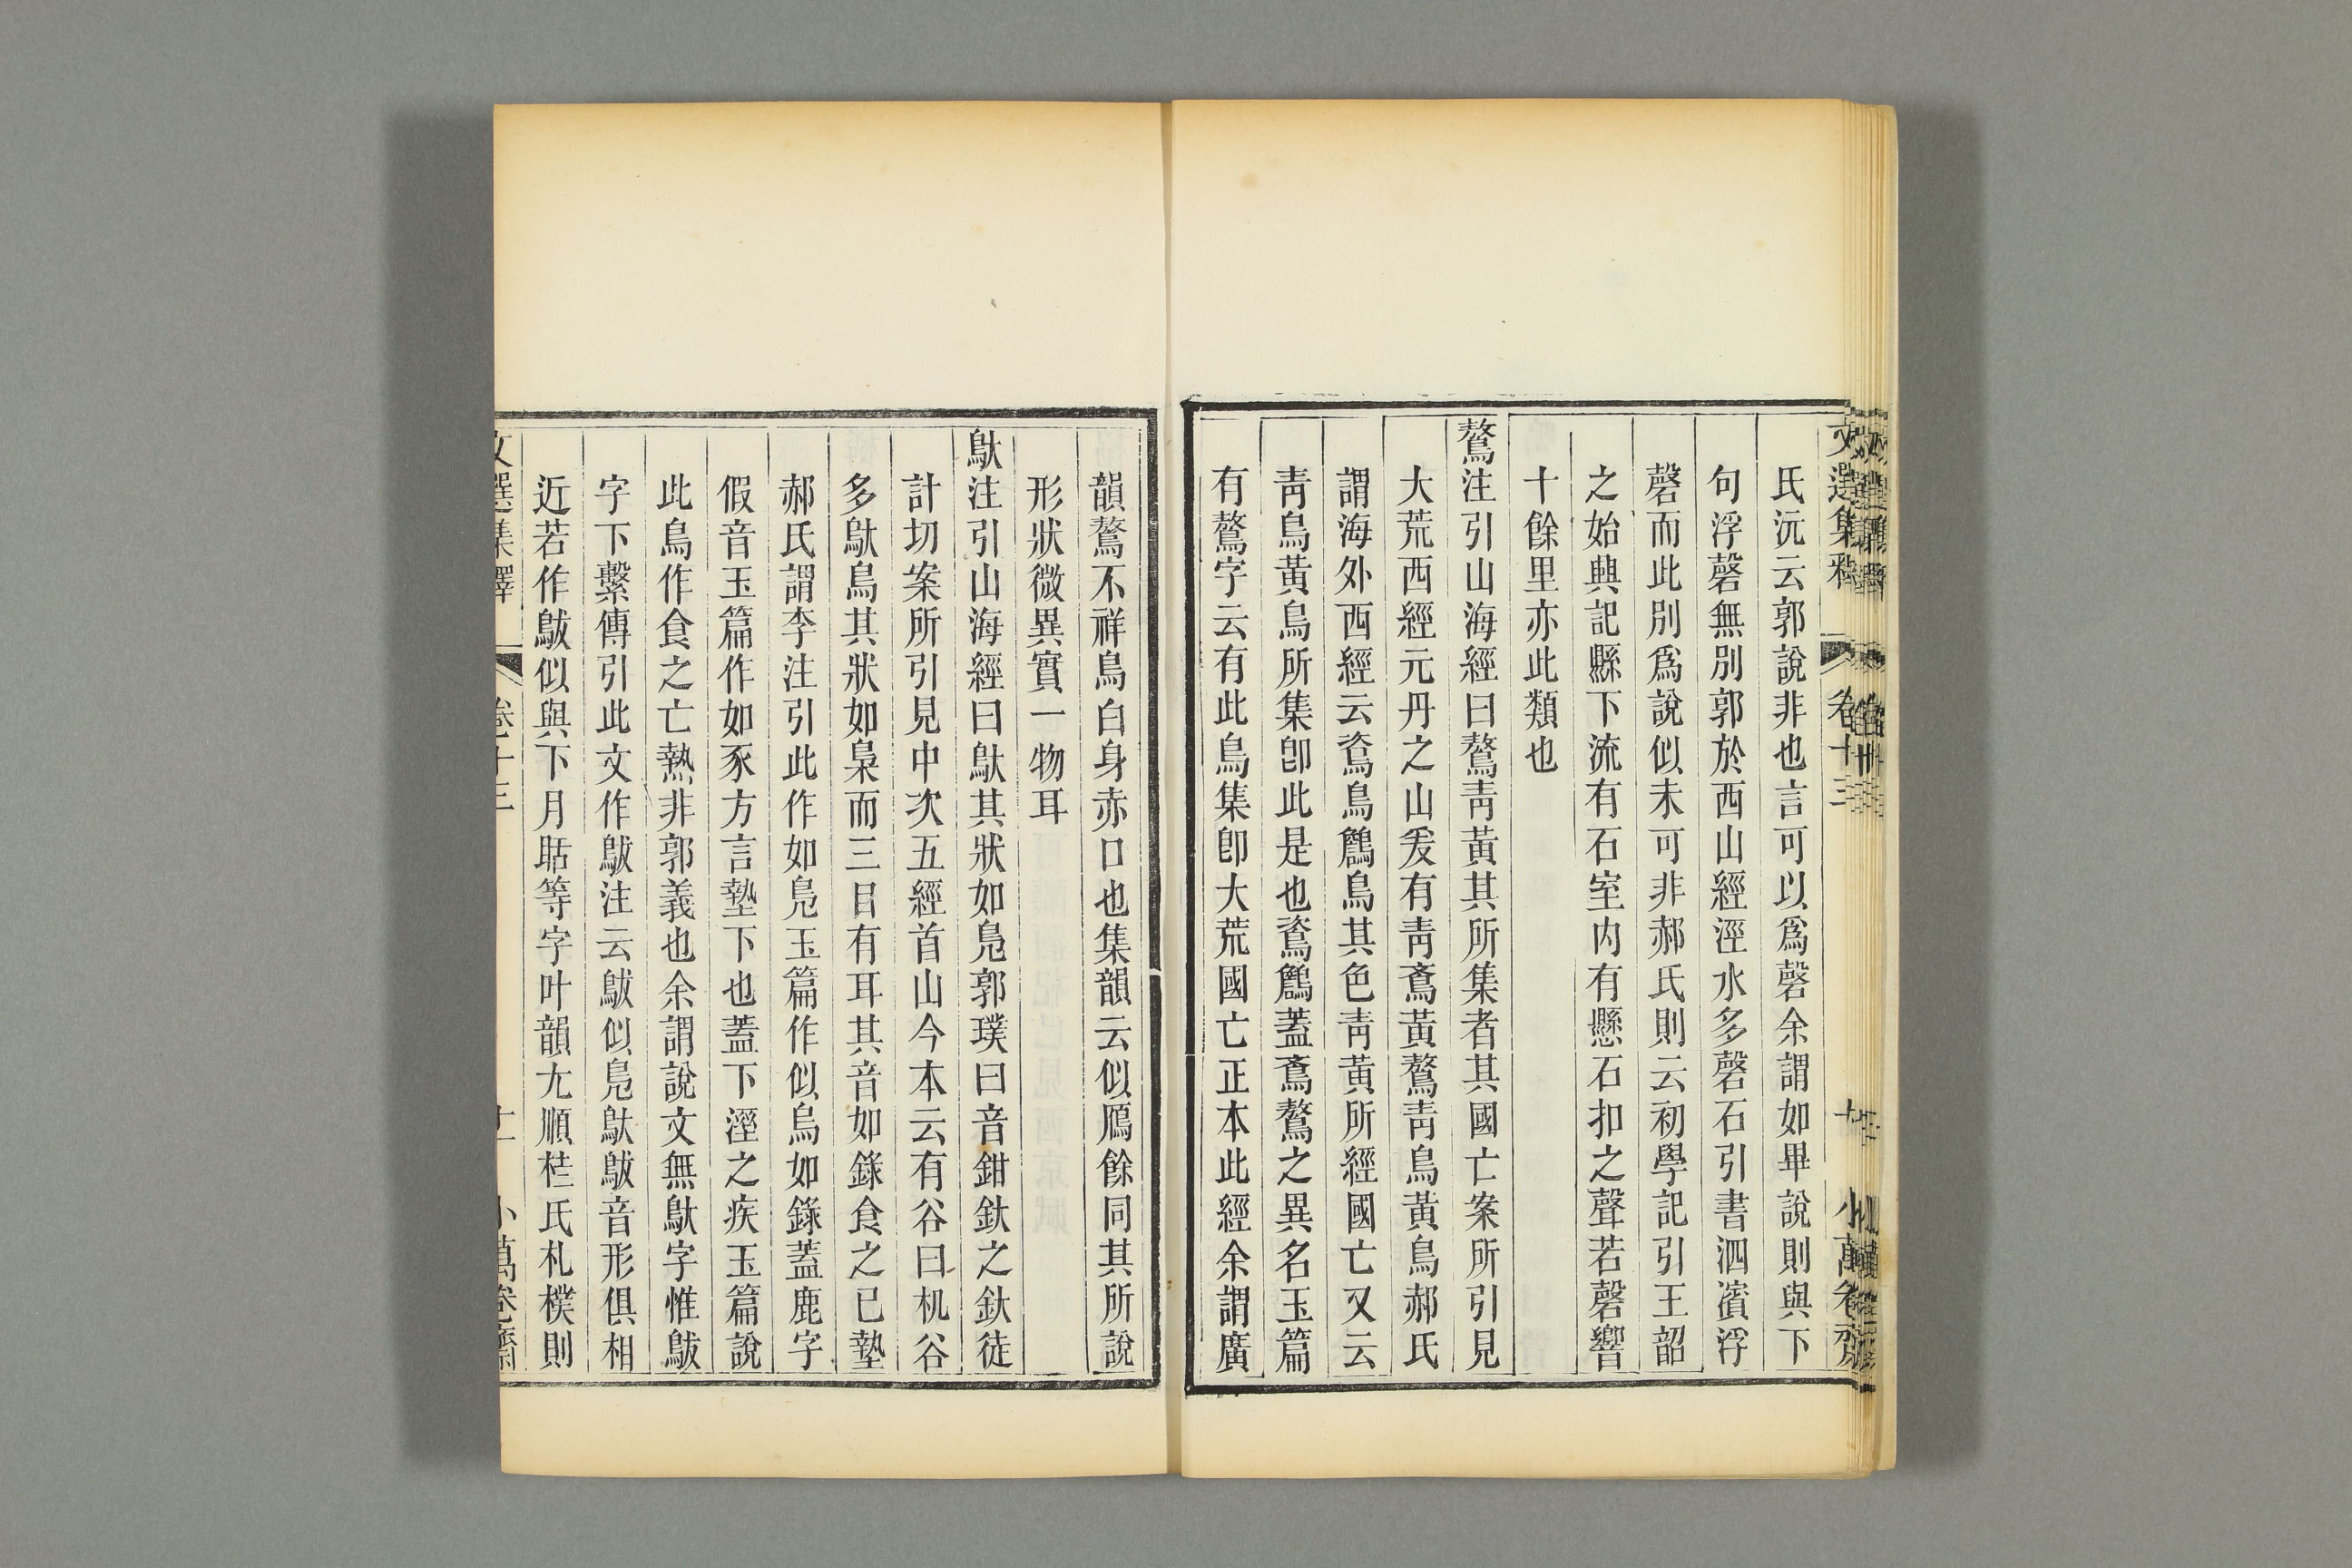 氏沅云郭說非也言可以爲磬余謂如畢說則與下
句浮磬無別郭於西山經涇水多磬石引書泗濱浮
磬而此別爲說似未可非郝氏則云初學記引王韶
之始興記縣下流有石室內有懸石扣之聲若磬響
十餘里亦此類也
鷔注引山海經曰鷔青黃其所集者其國亡案所引見
大荒西經元丹之山爰有青鴍黃鷔青鳥黃鳥郝氏
謂海外西經云鶿鳥鶬鳥其色青黃所經國亡又云
青鳥黃鳥所集卽此是也鶿鶬蓋鴍鷔之異名玉篇
有鷔字云有此鳥集卽大荒國亡正本此經余謂廣
韻鷔不祥鳥白身赤口也集韻云似鴈餘同其所說
形狀微異實一物耳
䳅注引山海經曰䳅其狀如鳧郭璞曰音鉗釱之釱徒
計切案所引見中次五經首山今本云有谷曰机谷
多䳅鳥其狀如梟而三目有耳其音如錄食之已墊
郝氏謂李注引此作如鳧玉篇作似烏如錄蓋鹿字
假音玉篇作如豕方言墊下也蓋下溼之疾玉篇說
此鳥作食之亡熱非郭義也余謂說文無䳅字惟鴥
字下繫傳引此文作鴥注云鴥似鳧䳅鴥音形俱相
近若作鴥似與下月聒等字叶韻尢順桂氏札樸則
文選集釋 卷十三 十 小萬卷齋
文選集釋 卷十三 十一 小萬卷齋